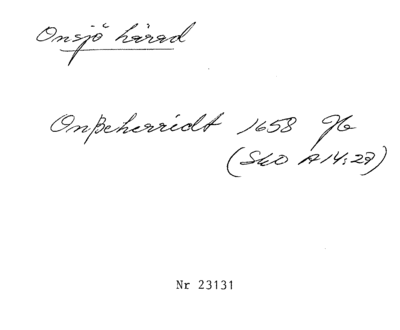 Onsjö härad
Onßherridt 1658 Jb
(SkO A14:29)
Nr 23131